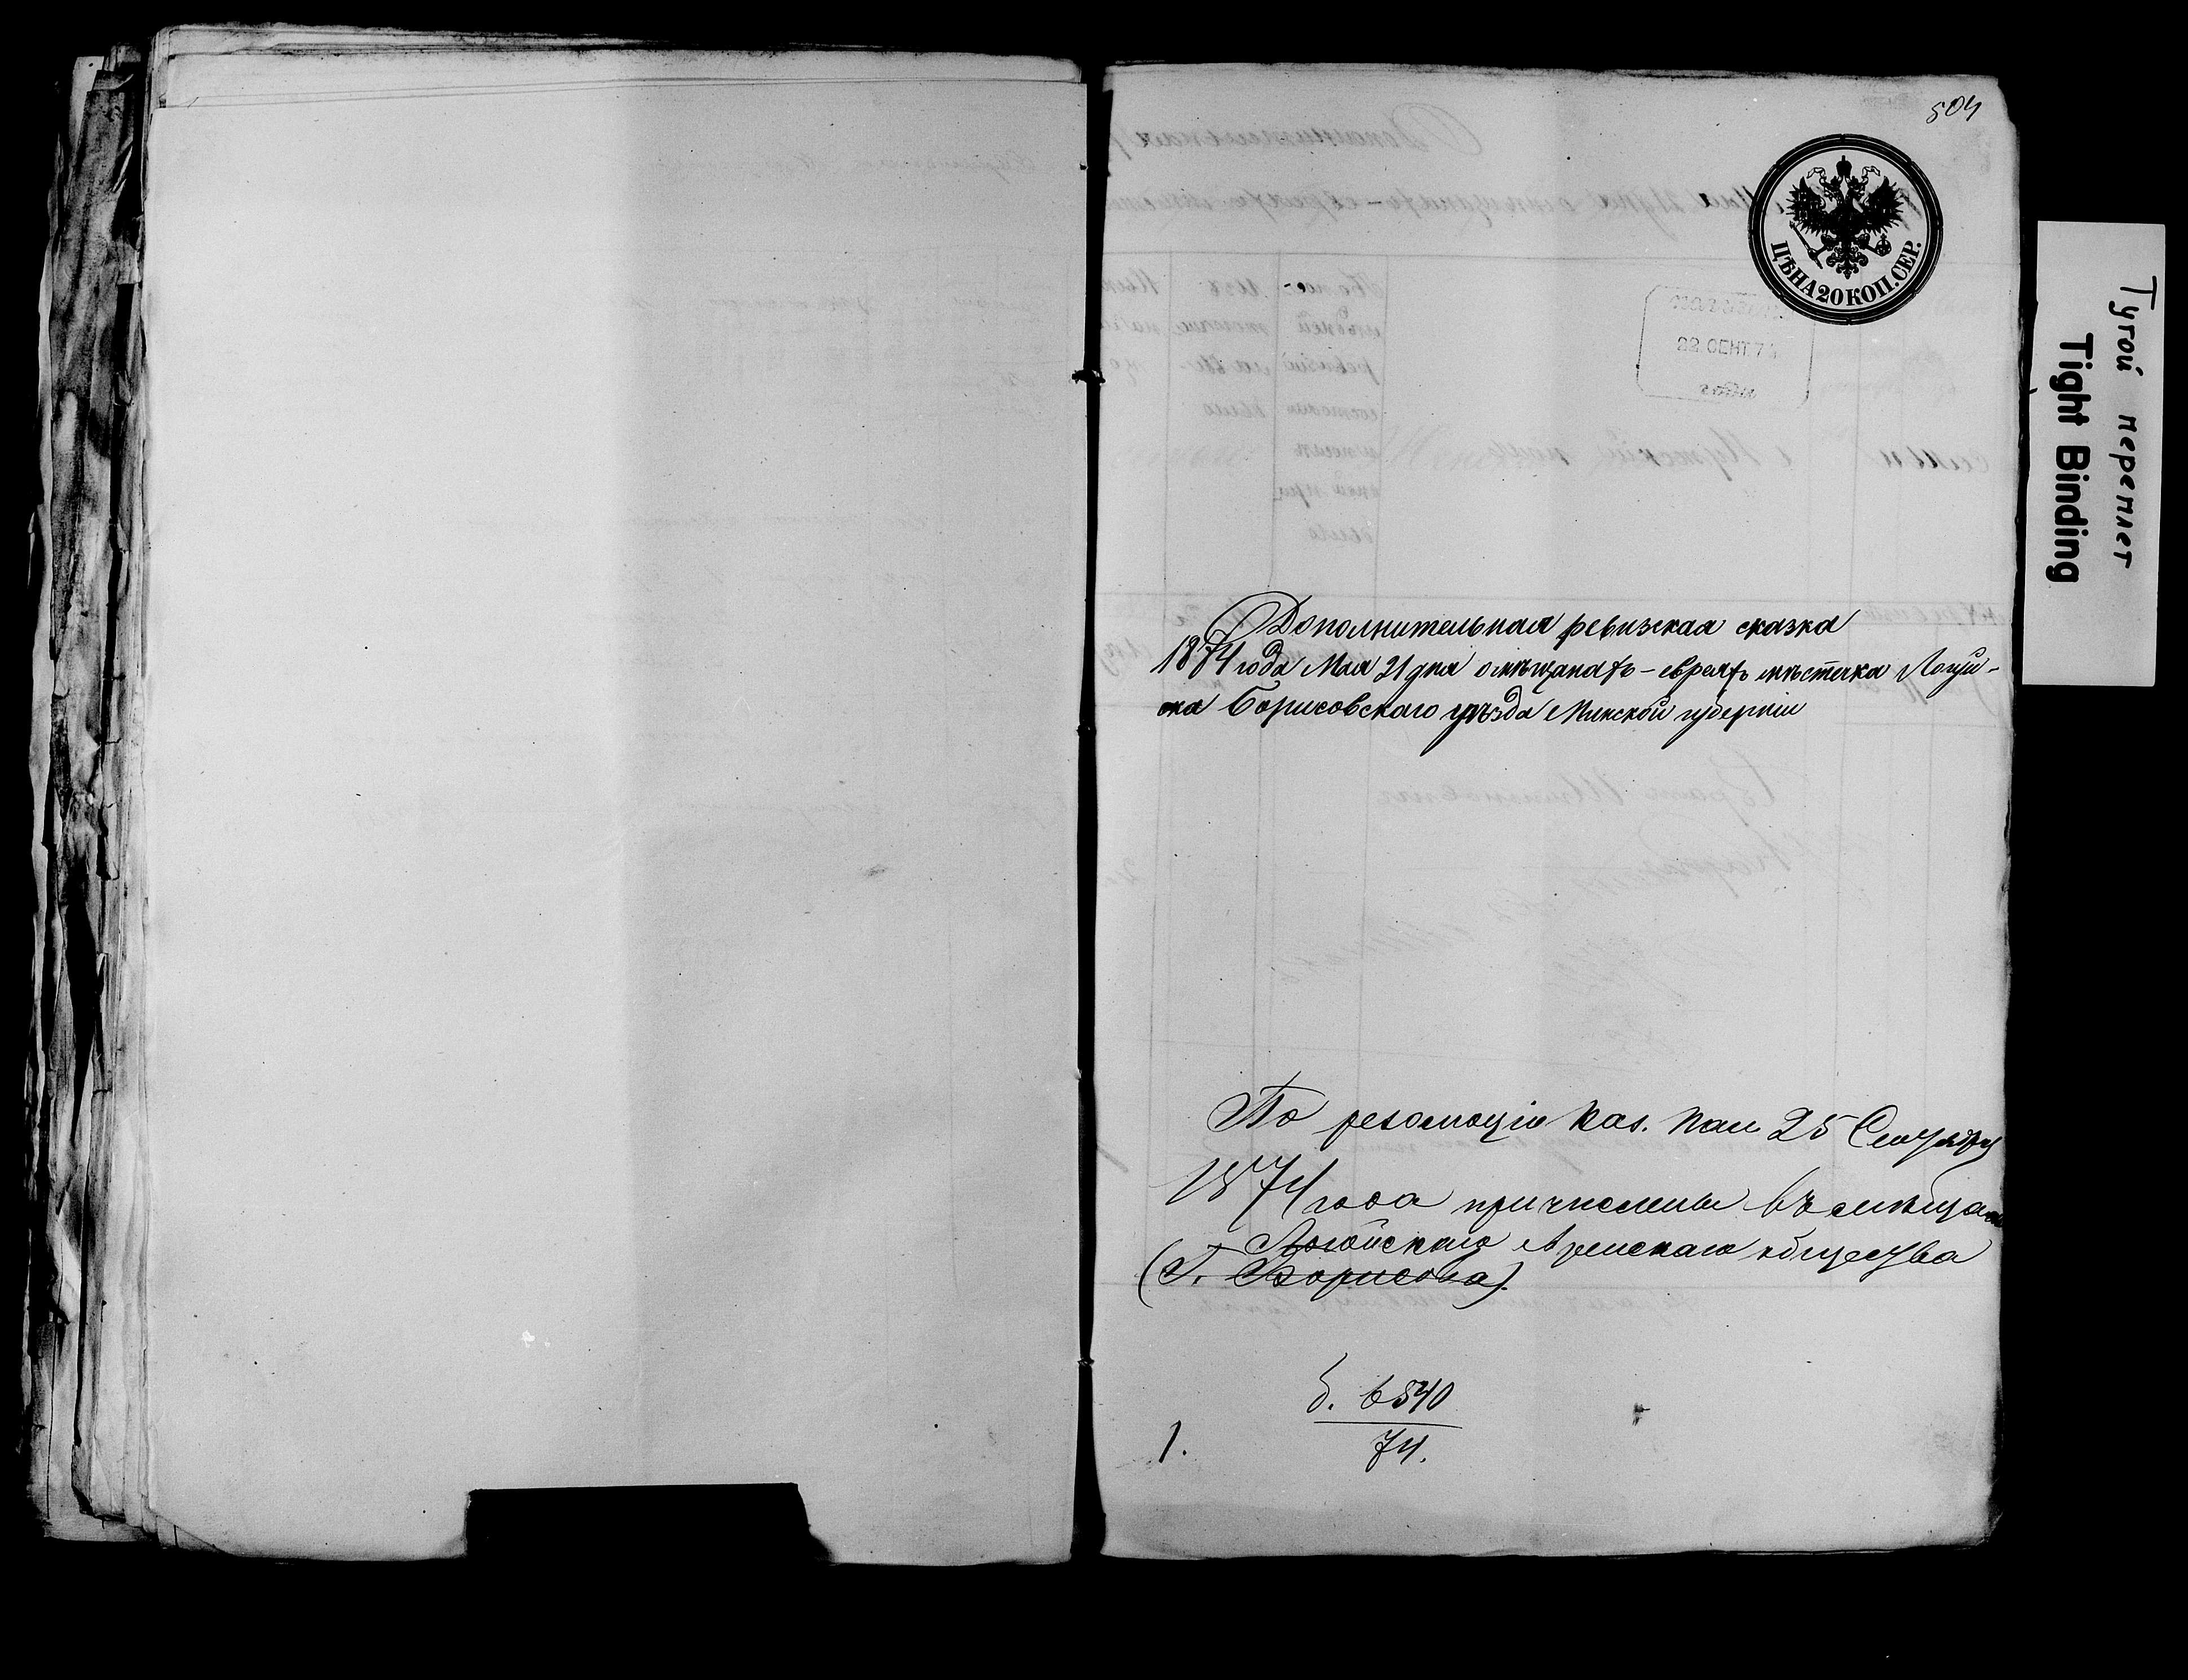 504
ЦѢНА 20 КОП. СЕР.
22 СЕНТ 74
Тугой переплет
Tight Binding
Дополнительная ревизская сказка
1874 года Мая 21 дня о мѣщанахъ-евреяхъ мѣстечка Логой-
ска Борисовскаго уѣзда Минской губерніи
По резолюціи Каз. Пал 25 Сентября
1874 года причислены въ мѣщане
Логойскаго еврейскаго общества
(Г. Борисова).
б. 6540
74.
1.